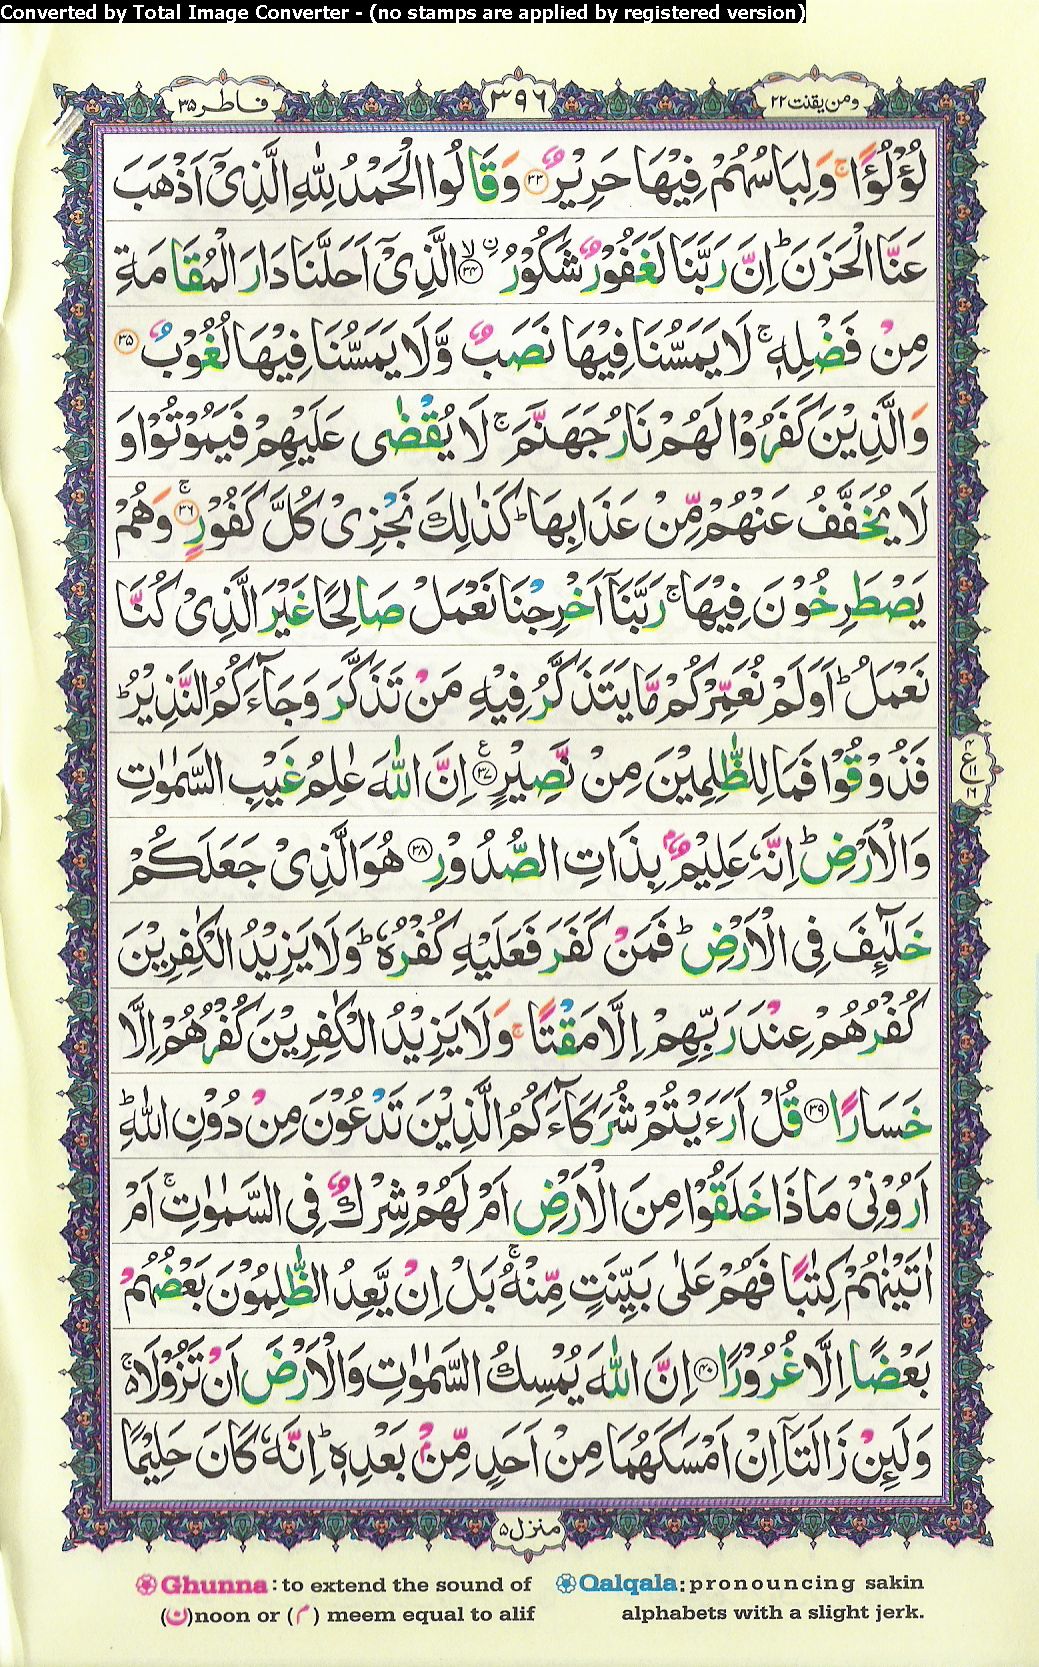 Converted by Total Image Converter - (no stamps are applied by registered version)
ومن یقنت ۲۲
۳۹۶
فاطر ۳۵
لُؤْلُؤًا ۚ وَلِبَاسُهُمْ فِيْهَا حَرِيْرٌ ﴿۳۳﴾ وَقَالُوا الْحَمْدُ لِلّٰهِ الَّذِيْٓ اَذْهَبَ
عَنَّا الْحَزَنَ ؕ اِنَّ رَبَّنَا لَغَفُوْرٌ شَكُوْرُ ۙ﴿۳۴﴾ ۨالَّذِيْٓ اَحَلَّنَا دَارَ الْمُقَامَةِ
مِنْ فَضْلِهٖ ۚ لَا يَمَسُّنَا فِيْهَا نَصَبٌ وَّلَا يَمَسُّنَا فِيْهَا لُغُوْبٌ ﴿۳۵﴾
وَالَّذِيْنَ كَفَرُوْا لَهُمْ نَارُ جَهَنَّمَ ۚ لَا يُقْضٰى عَلَيْهِمْ فَيَمُوْتُوْا وَ
لَا يُخَفَّفُ عَنْهُمْ مِّنْ عَذَابِهَا ؕ كَذٰلِكَ نَجْزِيْ كُلَّ كَفُوْرٍ ۚ﴿۳۶﴾ وَهُمْ
يَصْطَرِخُوْنَ فِيْهَا ۚ رَبَّنَآ اَخْرِجْنَا نَعْمَلْ صَالِحًا غَيْرَ الَّذِيْ كُنَّا
نَعْمَلُ ؕ اَوَلَمْ نُعَمِّرْكُمْ مَّا يَتَذَكَّرُ فِيْهِ مَنْ تَذَكَّرَ وَجَآءَكُمُ النَّذِيْرُ ؕ
فَذُوْقُوْا فَمَا لِلظّٰلِمِيْنَ مِنْ نَّصِيْرٍ ﴿۳۷﴾ ع اِنَّ اللّٰهَ عٰلِمُ غَيْبِ السَّمٰوٰتِ
ع ۴ ۱۱ ۱۶
وَالْاَرْضِ ؕ اِنَّهٗ عَلِيْمٌۢ بِذَاتِ الصُّدُوْرِ ﴿۳۸﴾ هُوَ الَّذِيْ جَعَلَكُمْ
خَلٰٓئِفَ فِي الْاَرْضِ ؕ فَمَنْ كَفَرَ فَعَلَيْهِ كُفْرُهٗ ؕ وَلَا يَزِيْدُ الْكٰفِرِيْنَ
كُفْرُهُمْ عِنْدَ رَبِّهِمْ اِلَّا مَقْتًا ۚ وَلَا يَزِيْدُ الْكٰفِرِيْنَ كُفْرُهُمْ اِلَّا
خَسَارًا ﴿۳۹﴾ قُلْ اَرَءَيْتُمْ شُرَكَآءَكُمُ الَّذِيْنَ تَدْعُوْنَ مِنْ دُوْنِ اللّٰهِ ؕ
اَرُوْنِيْ مَاذَا خَلَقُوْا مِنَ الْاَرْضِ اَمْ لَهُمْ شِرْكٌ فِي السَّمٰوٰتِ ۚ اَمْ
اٰتَيْنٰهُمْ كِتٰبًا فَهُمْ عَلٰى بَيِّنَتٍ مِّنْهُ ۚ بَلْ اِنْ يَّعِدُ الظّٰلِمُوْنَ بَعْضُهُمْ
بَعْضًا اِلَّا غُرُوْرًا ﴿۴۰﴾ اِنَّ اللّٰهَ يُمْسِكُ السَّمٰوٰتِ وَالْاَرْضَ اَنْ تَزُوْلَا ۚ۬
وَلَئِنْ زَالَتَآ اِنْ اَمْسَكَهُمَا مِنْ اَحَدٍ مِّنْۢ بَعْدِهٖ ؕ اِنَّهٗ كَانَ حَلِيْمًا
منزل ۵
Ghunna: to extend the sound of
(ن)noon or (م) meem equal to alif
Qalqala: pronouncing sakin
alphabets with a slight jerk.